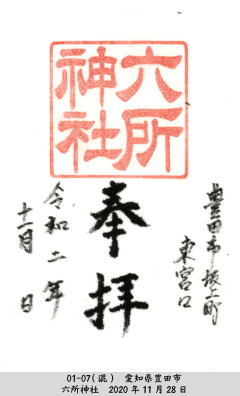 六所
神社
豊田市坂上町
東宮口
奉拝
令和二年
十一月 日
01-07(混) 愛知県豊田市
六所神社 2020年11月28日